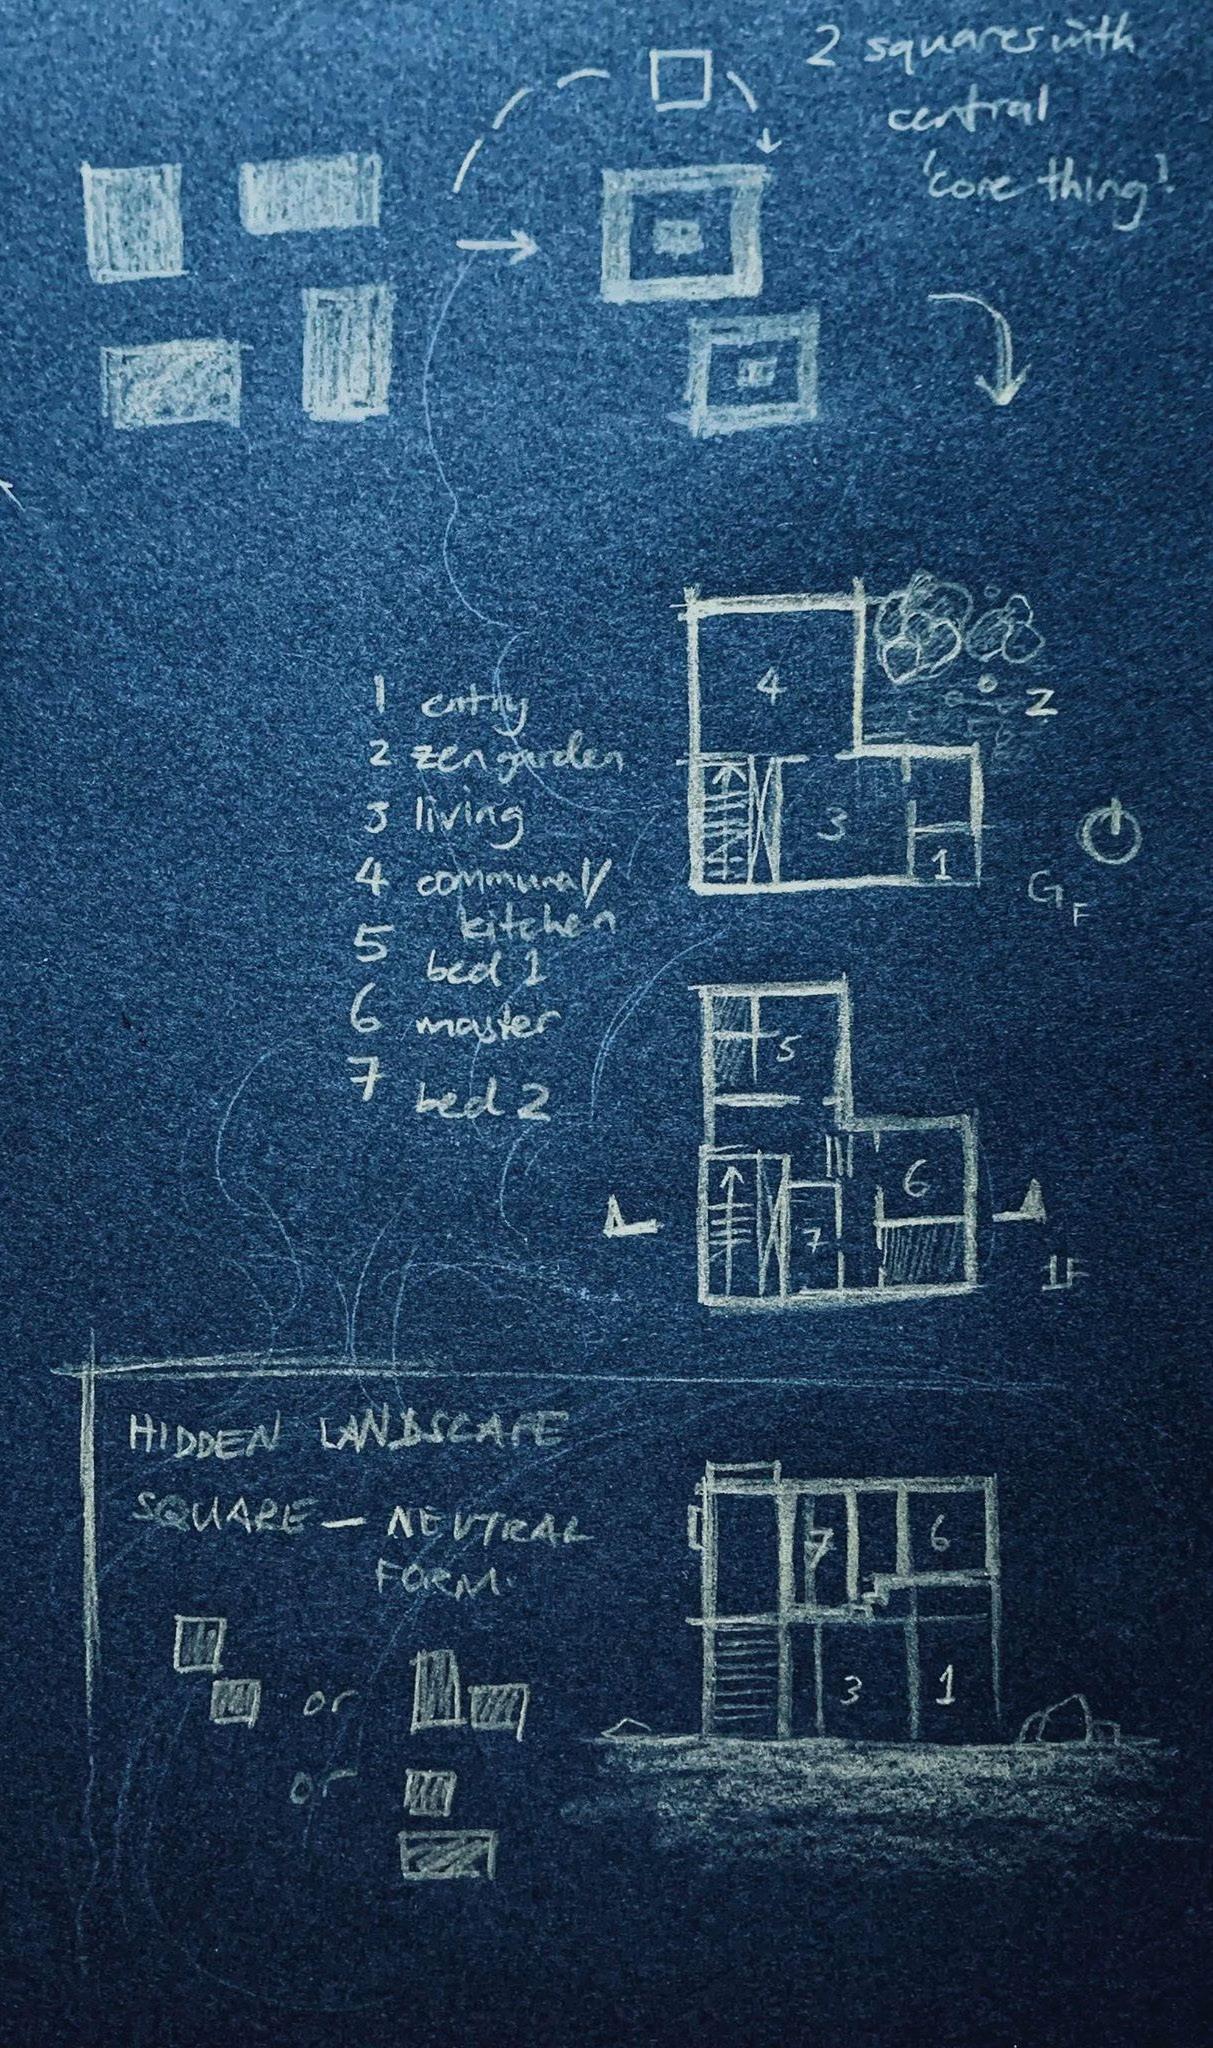 2 squares with
central
'core thing'.
1 entry
2 zen garden
3 living
4 communal/
kitchen
5 bed 1
6 master
7 bed 2
4
2
3
1
GF
5
6
7
1F
HIDDEN LANDSCAPE
SQUARE — NEUTRAL
FORM.
or
or
7
6
3
1